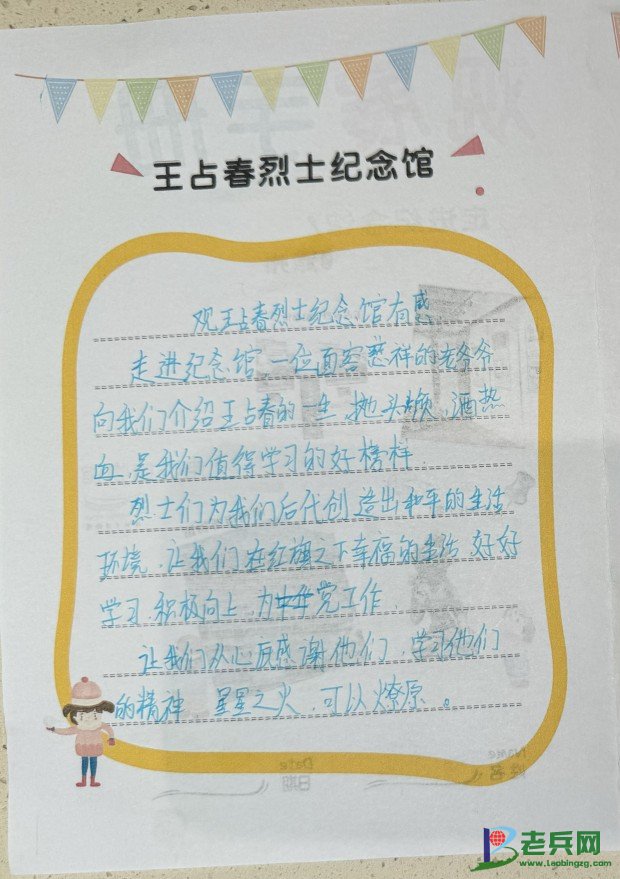 王占春烈士纪念馆
观王占春烈士纪念馆有感
走进纪念馆,一位面容慈祥的老爷爷
向我们介绍王占春的一生,抛头颅,洒热
血,是我们值得学习的好榜样.
烈士们为我们后代创造出和平的生活
环境,让我们在红旗之下幸福的生活 好好
学习,积极向上,为党工作.
让我们从心底感谢他们,学习他们
的精神 星星之火,可以燎原。
Name
姓名
Date
日期
老兵网
www.Laobingzg.com